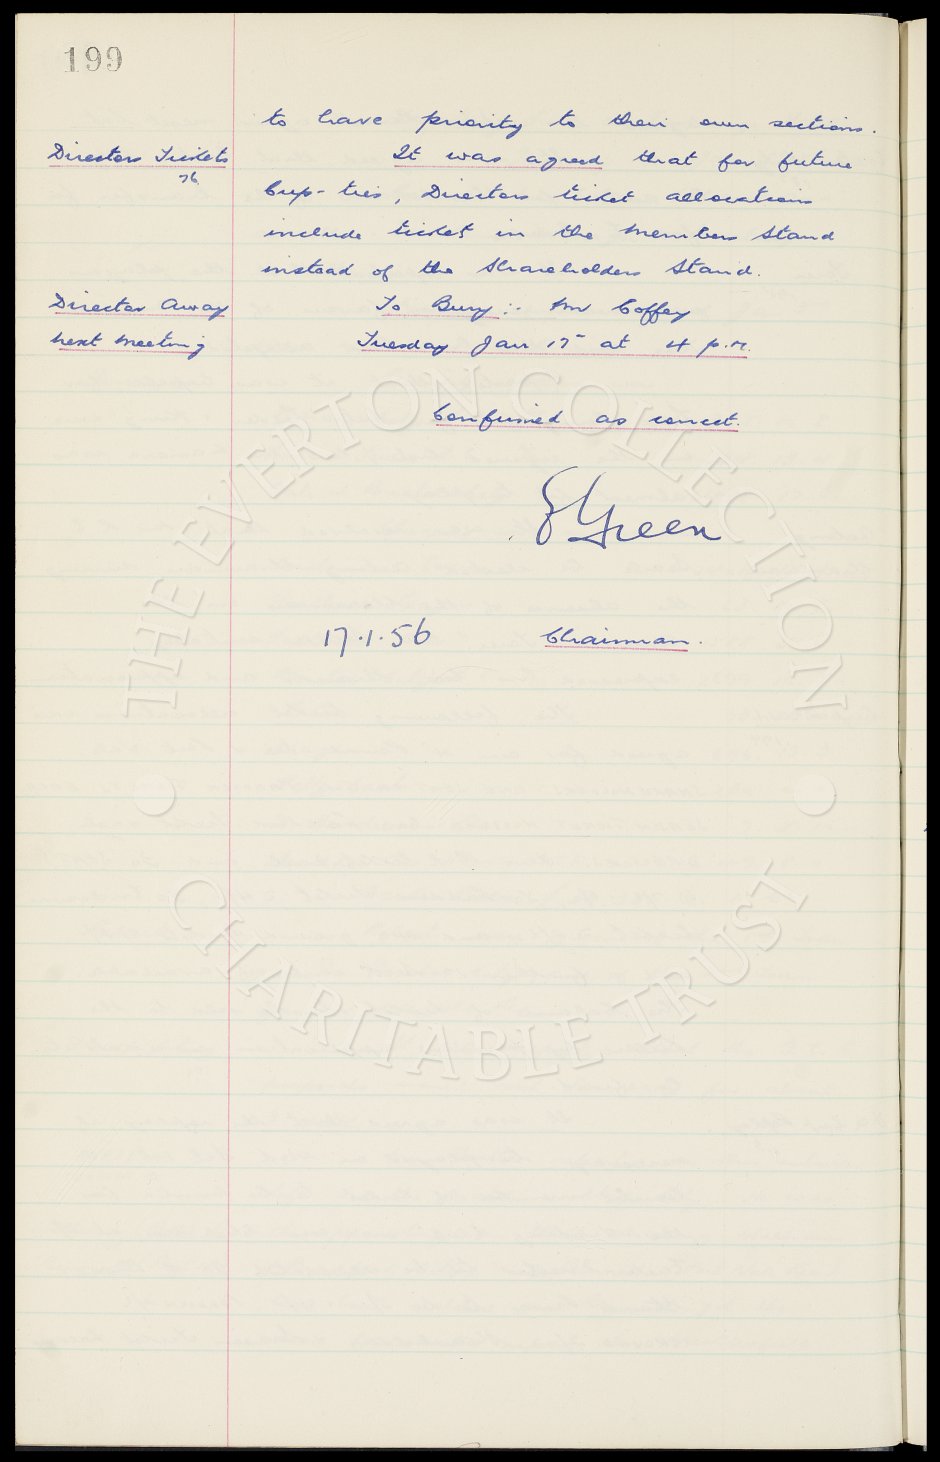 199
to have priority to their own sections.
Directors Tickets It was agreed that for future
76
Cup-ties, Directors ticket allocations
include ticket in the Members Stand
instead of the Shareholders Stand.
Director Away To Bury :- Mr Coffey
Next Meeting Tuesday Jan 17 at 4 p.m.
Confirmed as correct.
E Green
17.1.56 Chairman.
THE EVERTON COLLECTION
CHARITABLE TRUST